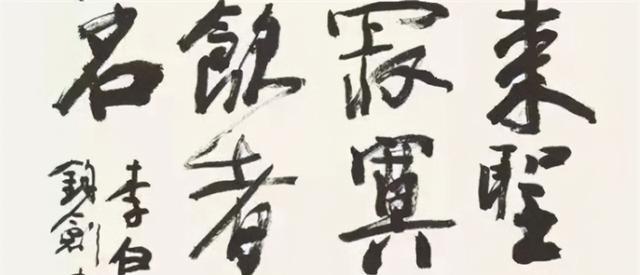 来聖
寂寞
飲者
名
李白
鈞劍